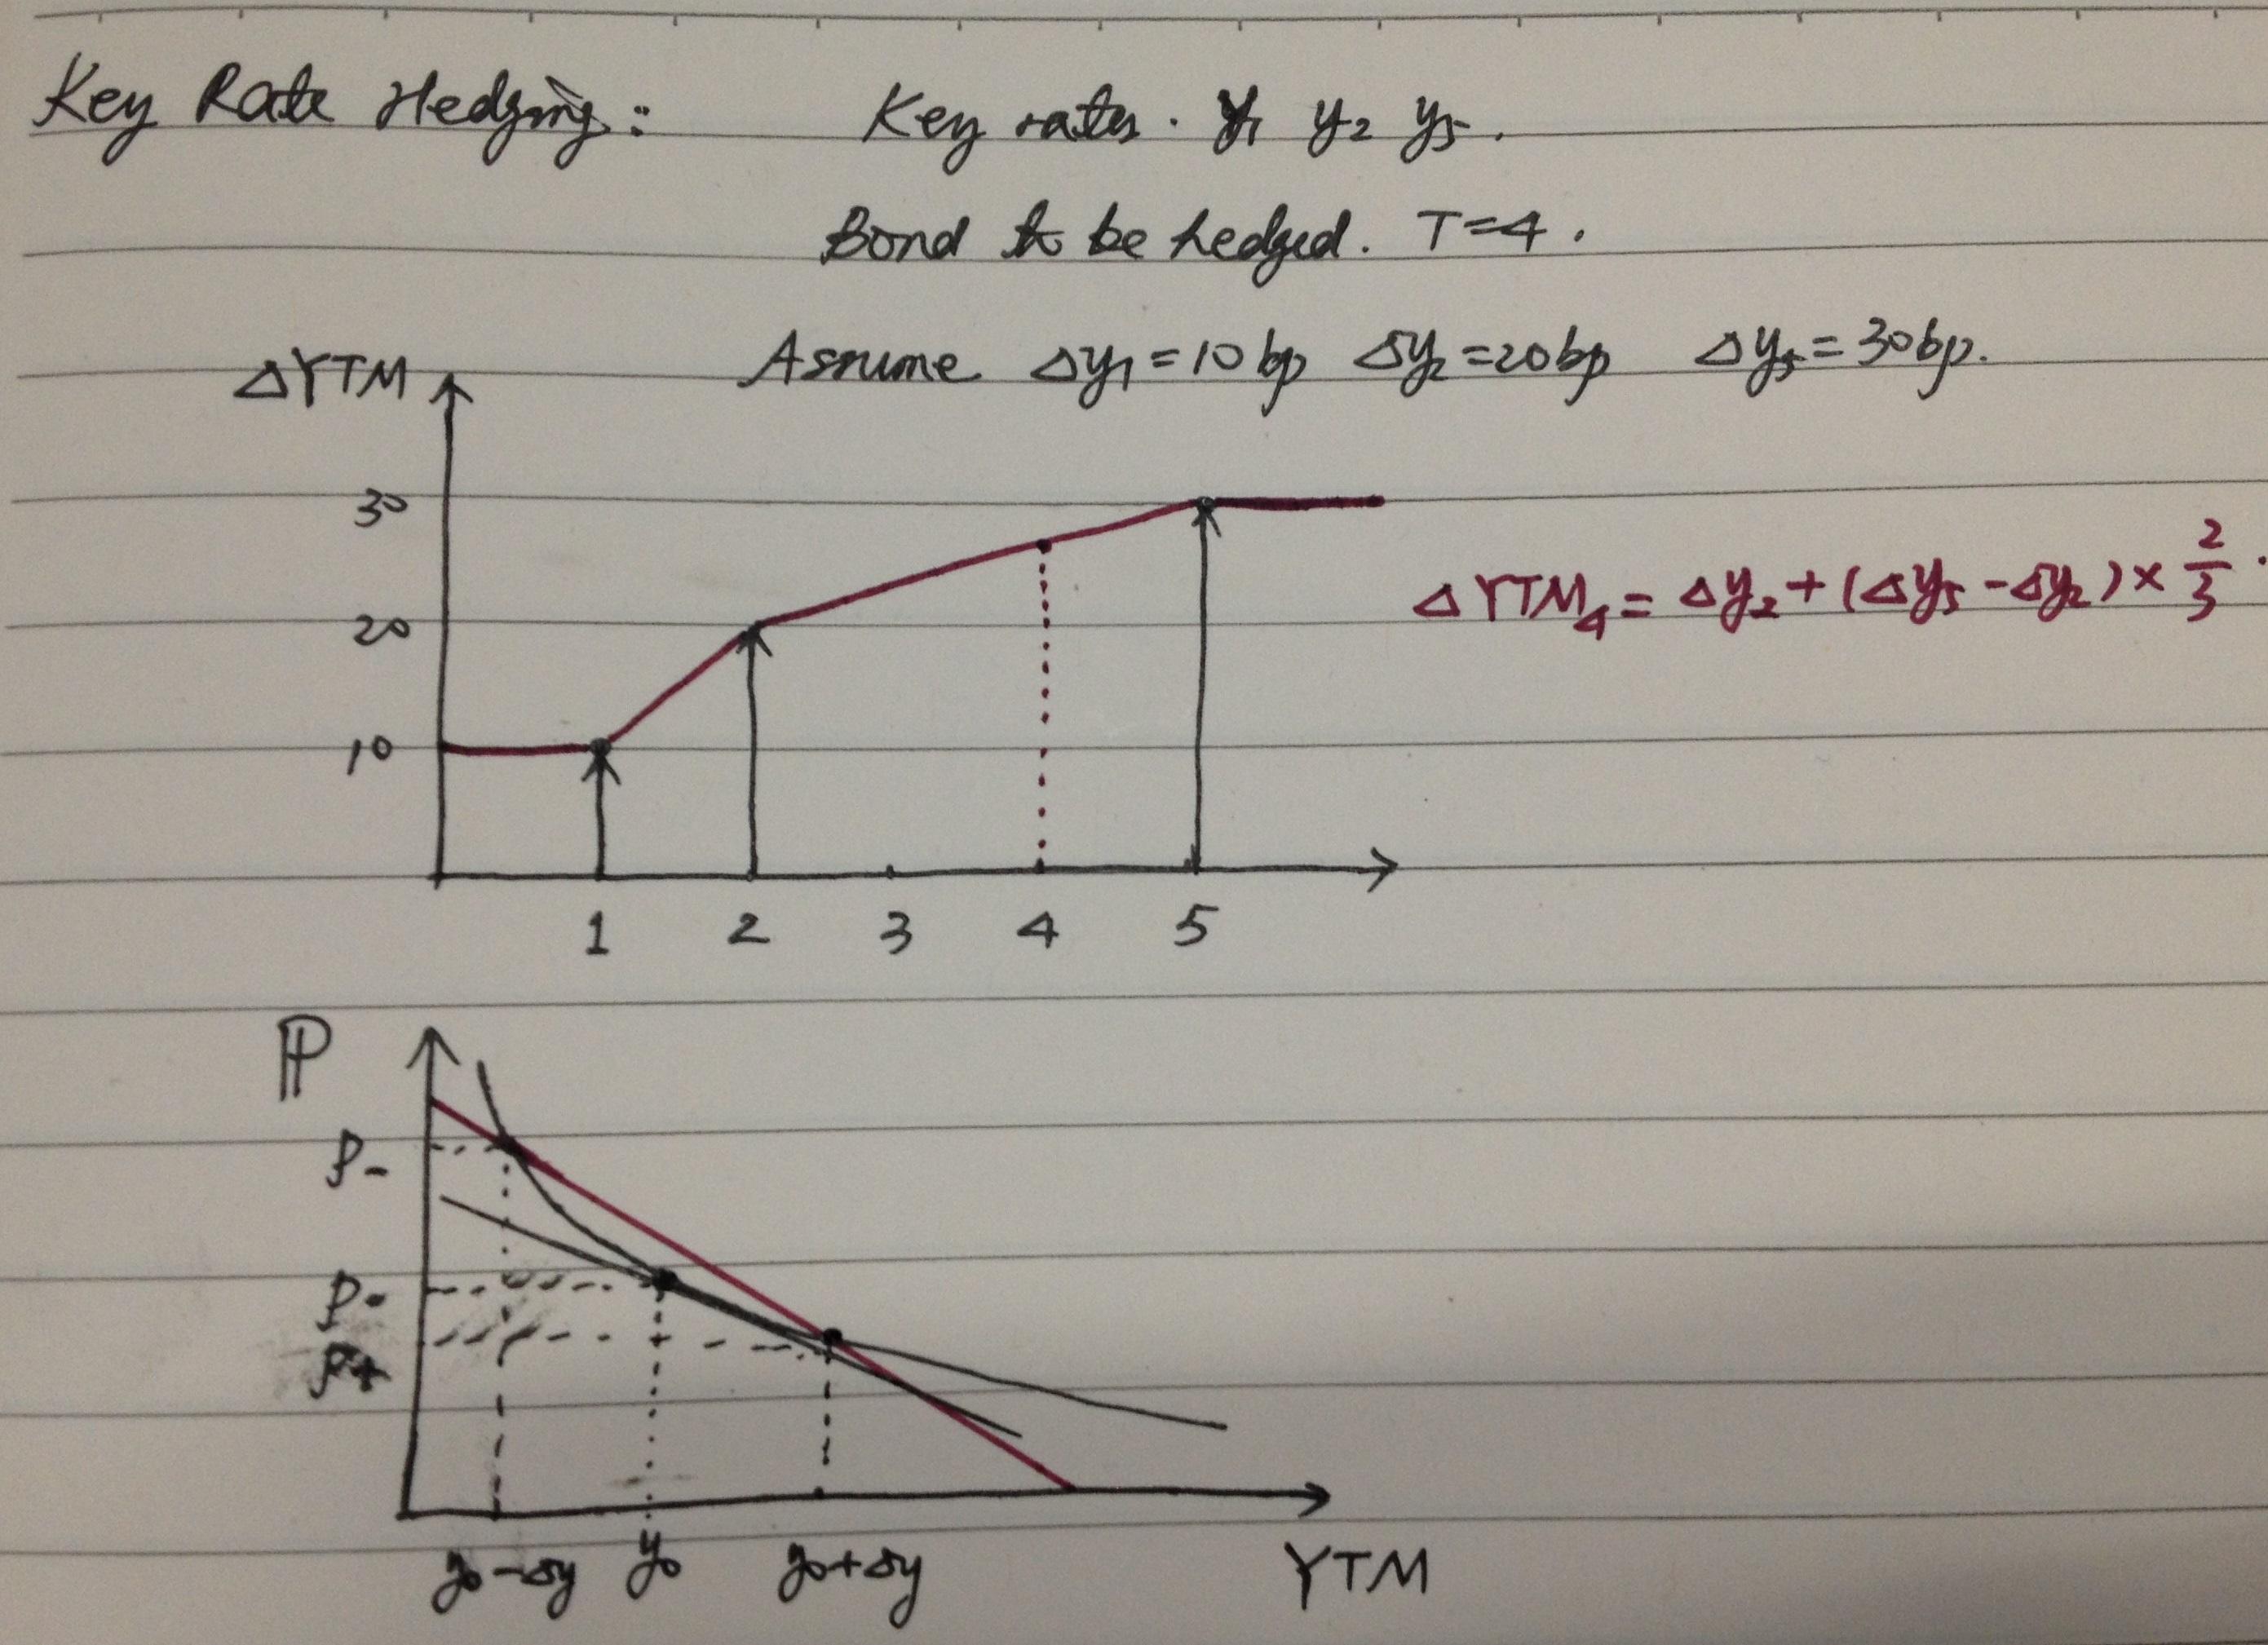 Key Rate Hedging: Key rates. y1 y2 y5.
Bond to be hedged. T=4.
Assume Δy1=10bp Δy2=20bp Δy5=30bp.
ΔYTM
30
20
10
ΔYTM4 = Δy2+(Δy5-Δy2)×2/3.
1 2 3 4 5
P
P-
P0
P+
y0-Δy y0 y0+Δy YTM